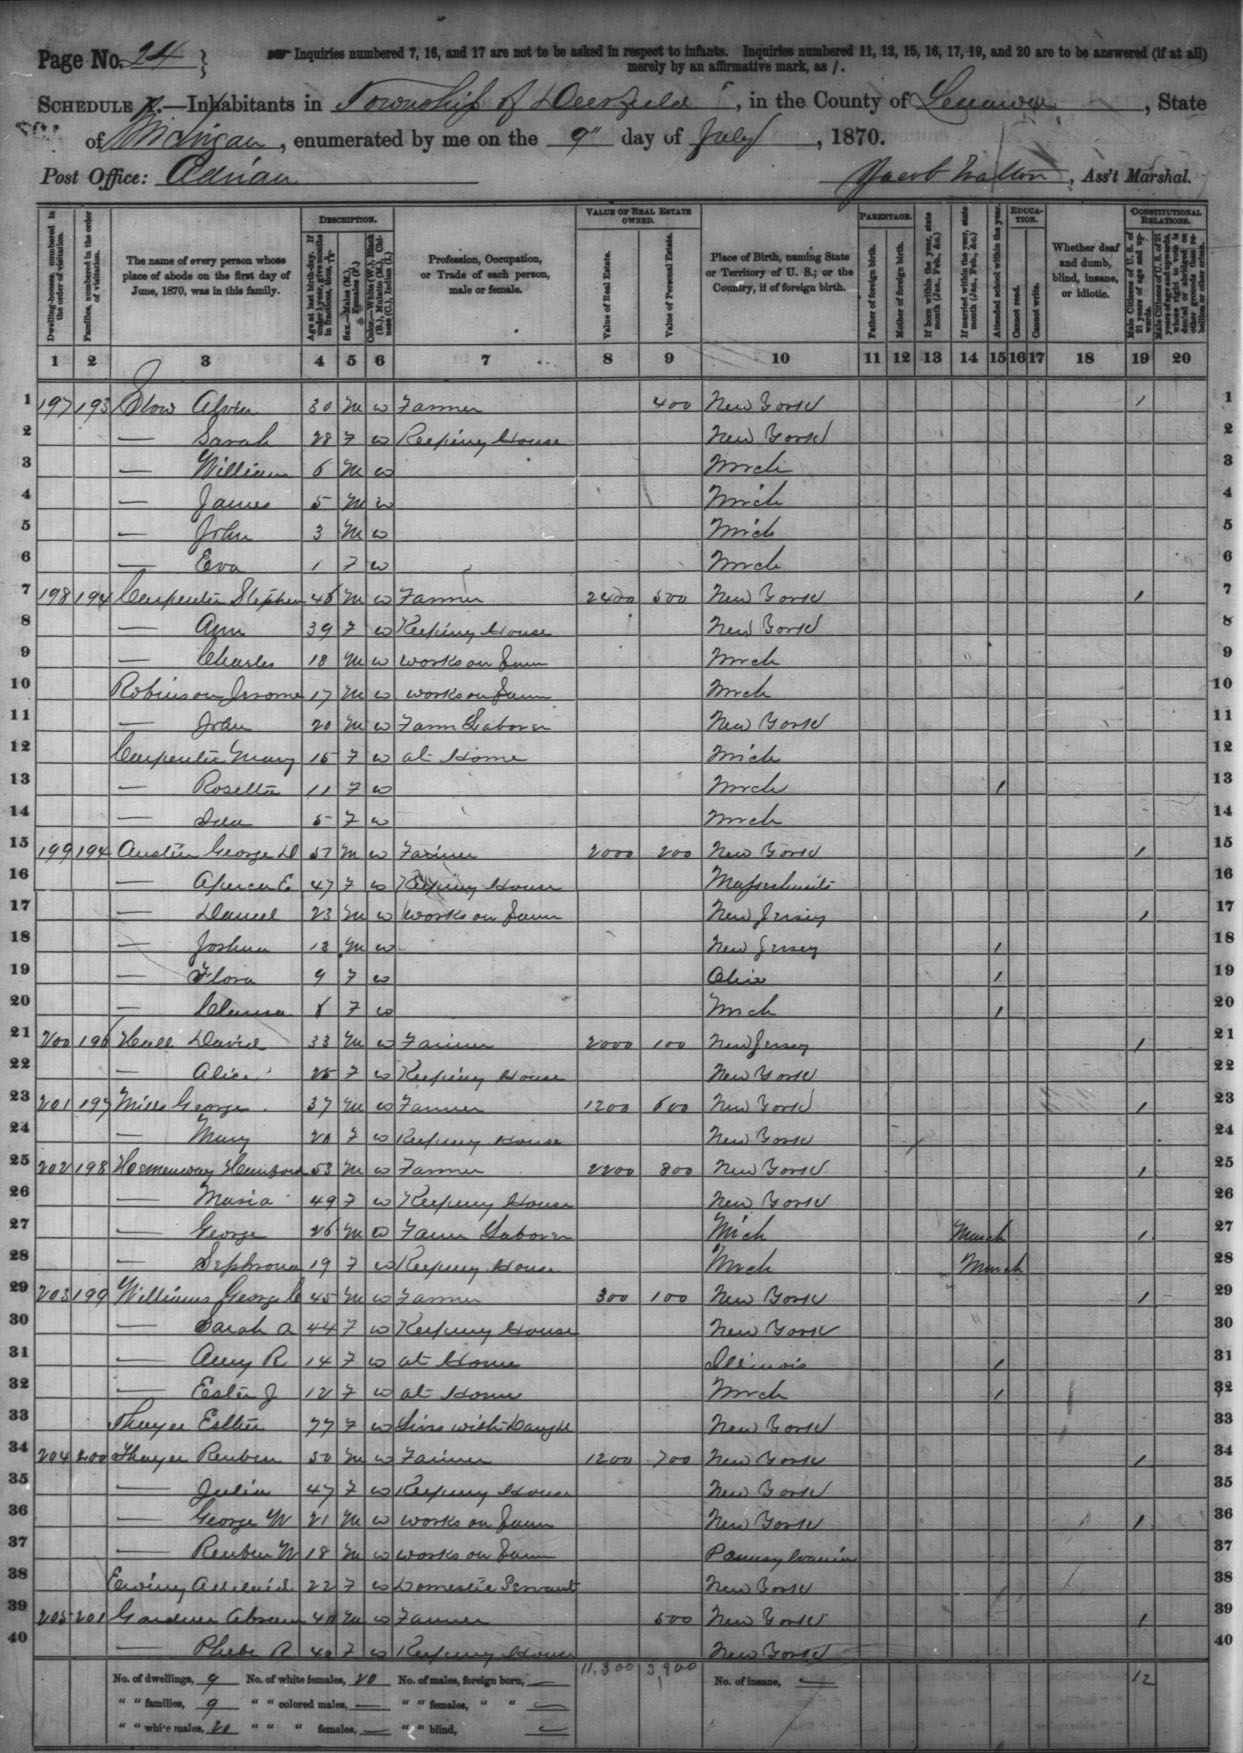 Page No. 24
Inquiries numbered 7, 16, and 17 are not to be asked in respect to infants. Inquiries numbered 11, 12, 15, 16, 17, 19, and 20 are to be answered (if at all)
merely by an affirmative mark, as /.
SCHEDULE 1.—Inhabitants in Township of Deerfield, in the County of Lenawee, State
of Michigan, enumerated by me on the 9" day of July, 1870.
Post Office: Adrian
Jacob Walton, Ass't Marshal.
Dwelling-houses, numbered in the order of visitation.
Families, numbered in the order of visitation.
The name of every person whose place of abode on the first day of June, 1870, was in this family.
DESCRIPTION.
Profession, Occupation, or Trade of each person, male or female.
VALUE OF REAL ESTATE OWNED.
Value of Real Estate.
Value of Personal Estate.
Place of Birth, naming State or Territory of U. S.; or the Country, if of foreign birth.
PARENTAGE.
Father of foreign birth.
Mother of foreign birth.
If born within the year, state month (Jan., Feb., &c.)
If married within the year, state month (Jan., Feb., &c.)
Attended school within the year.
EDUCATION.
Cannot read.
Cannot write.
Whether deaf and dumb, blind, insane, or idiotic.
CONSTITUTIONAL RELATIONS.
1 2 3 4 5 6 7 8 9 10 11 12 13 14 15 16 17 18 19 20
1 197 193 Alvin 30 M W Farmer 400 New York / 1
2 — Sarah 28 F W Keeping House New York 2
3 — William 6 M W Mich 3
4 — James 5 M W Mich 4
5 — John 3 M W Mich 5
6 — Eva 1 F W Mich 6
7 198 194 Carpenter Stephen 46 M W Farmer 2400 500 New York / 7
8 — Ann 39 F W Keeping House New York 8
9 — Charles 18 M W Works on farm Mich 9
10 Robinson Jerome 17 M W works on farm Mich 10
11 — John 20 M W Farm Laborer New York 11
12 Carpenter Mary 15 F W at Home Mich 12
13 — Rosetta 11 F W Mich / 13
14 — 5 F W Mich 14
15 199 194 Austin George D 57 M W Farmer 2000 200 New York / 15
16 — E 47 F W Keeping House Massachusetts 16
17 — Daniel 23 M W Works on farm New Jersey / 17
18 — Joshua 13 M W New Jersey / 18
19 — Flora 9 F W Ohio / 19
20 — 8 F W Mich / 20
21 200 196 Hall David 33 M W Farmer 2000 100 New Jersey / 21
22 — Alice 25 F W Keeping House New York 22
23 201 197 Mills George 37 M W Farmer 1200 600 New York / 23
24 — Mary 20 F W Keeping House New York 24
25 202 198 Hemenway 53 M W Farmer 2200 800 New York / 25
26 — Maria 49 F W Keeping House New York 26
27 — George 26 M W Farm Laborer Mich March / 27
28 — Sephrona 19 F W Keeping House Mich March 28
29 203 199 Williams George C 45 M W Farmer 300 100 New York / 29
30 — Sarah A 44 F W Keeping House New York 30
31 — Amy R 14 F W at Home Illinois / 31
32 — Ester J 12 F W at Home Mich / 32
33 Thayer Esther 77 F W Lives with Daught New York 33
34 204 200 Thayer Reuben 50 M W Farmer 1200 700 New York / 34
35 — Julia 47 F W Keeping House New York 35
36 — George W 21 M W works on farm New York / 36
37 — Reuben W 18 M W works on farm Pennsylvania 37
38 22 F W Domestic Servant New York 38
39 205 201 Gardner Abram 40 M W Farmer 500 New York / 39
40 — Phebe R 40 F W Keeping House New York 40
No. of dwellings, 9 No. of white females, 20 No. of males, foreign born, — 11,300 3,900 No. of insane, — 12
" " families, 9 " " colored males, — " " females, " " —
" " white males, 20 " " " females, — " " blind, —